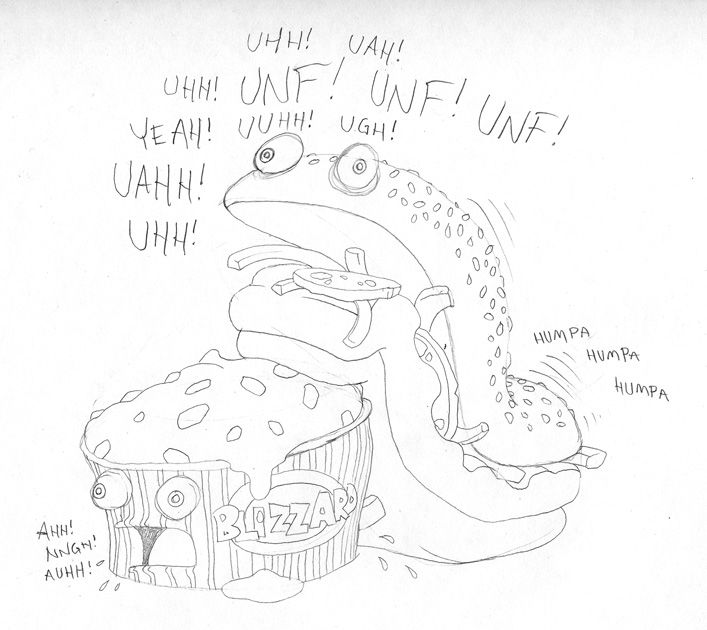 UHH! UAH!
UHH! UNF! UNF! UNF!
YEAH! UUHH! UGH!
UAHH!
UHH!
HUMPA
HUMPA
HUMPA
BLAZZARD
AHH!
NNGH!
AUHH!